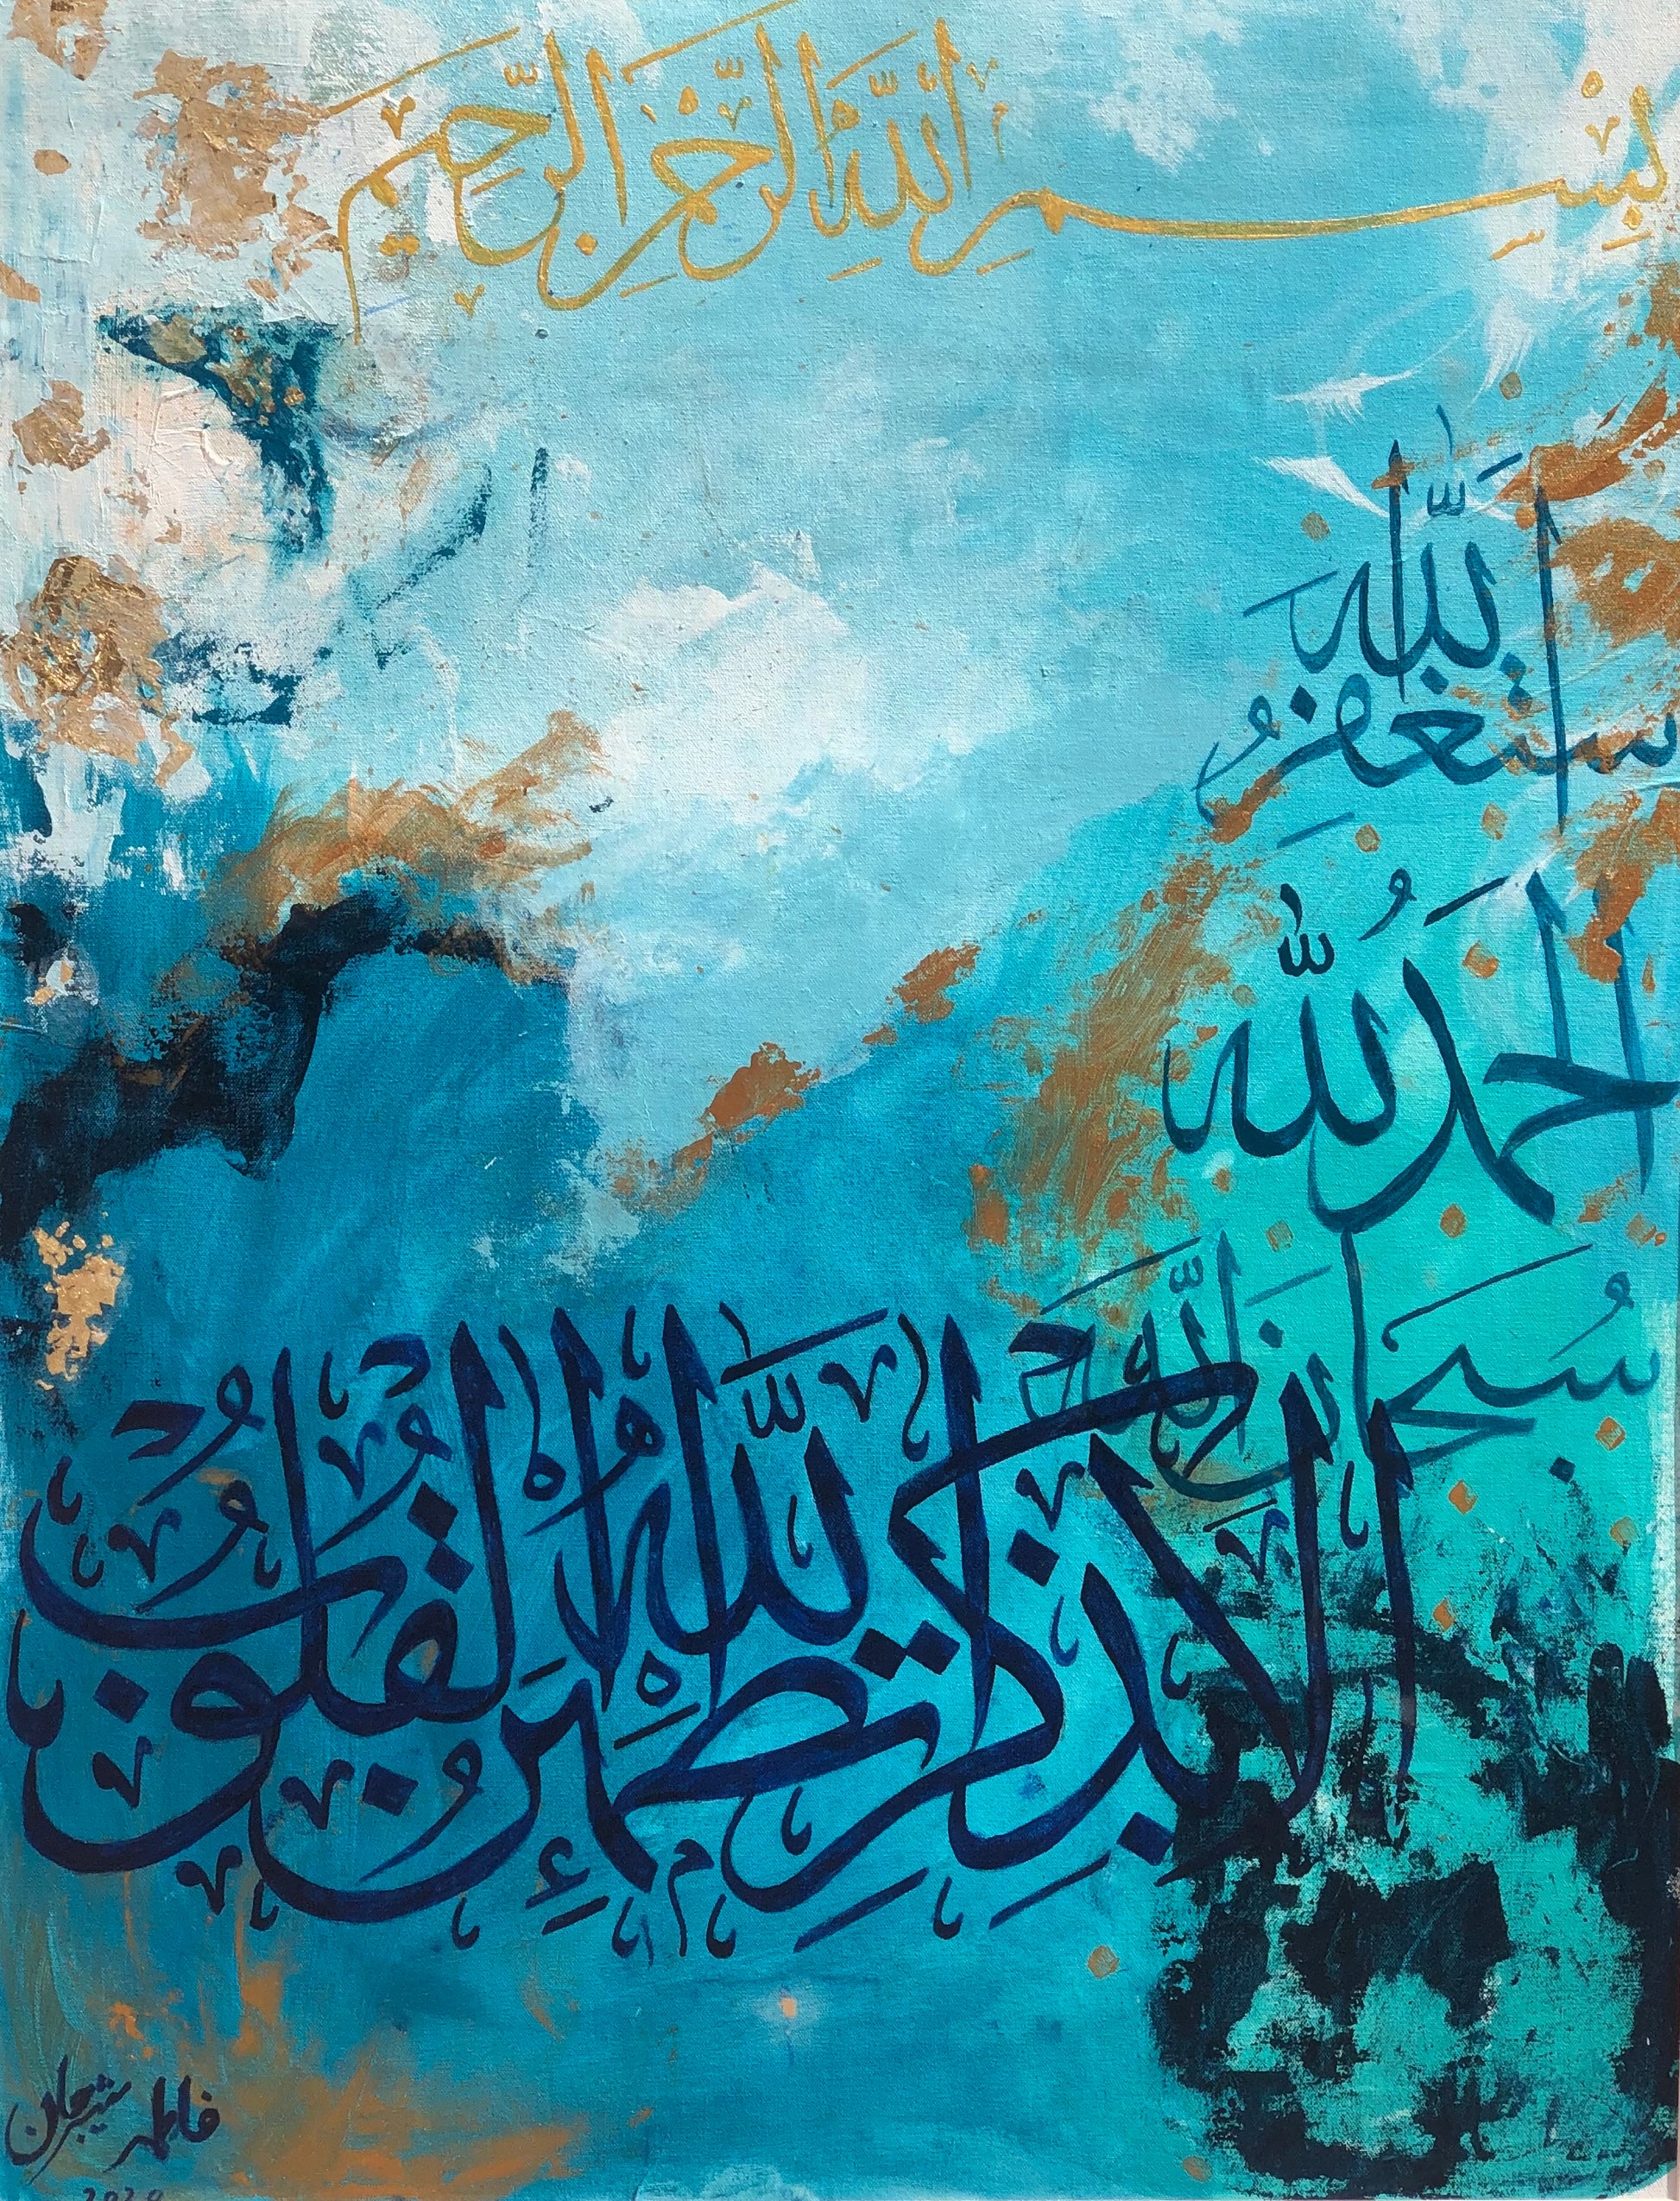 بِسْمِ اللَّهِ الرَّحْمَنِ الرَّحِيمِ
استغفرُ الله
الحمدُ لله
سُبحان الله
الا بِذِكرِ اللهِ تَطمَئِنُّ القُلُوبُ
فاطمه